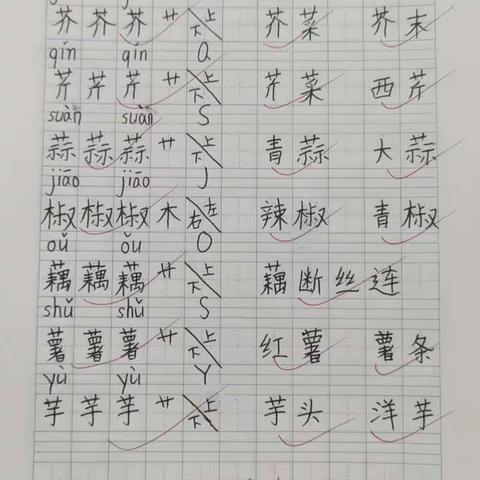 芥 芥 芥 艹 上 下 芥菜 芥末
qín qín Q
芹 芹 芹 艹 上 下 芹菜 西芹
suàn suàn S
蒜 蒜 蒜 艹 上 下 青蒜 大蒜
jiāo jiāo J
椒 椒 椒 木 左 右 辣椒 青椒
ǒu ǒu O
藕 藕 藕 艹 上 下 藕断丝连
shǔ shǔ S
薯 薯 薯 艹 上 下 红薯 薯条
yù yù Y
芋 芋 芋 艹 上 下 芋头 洋芋